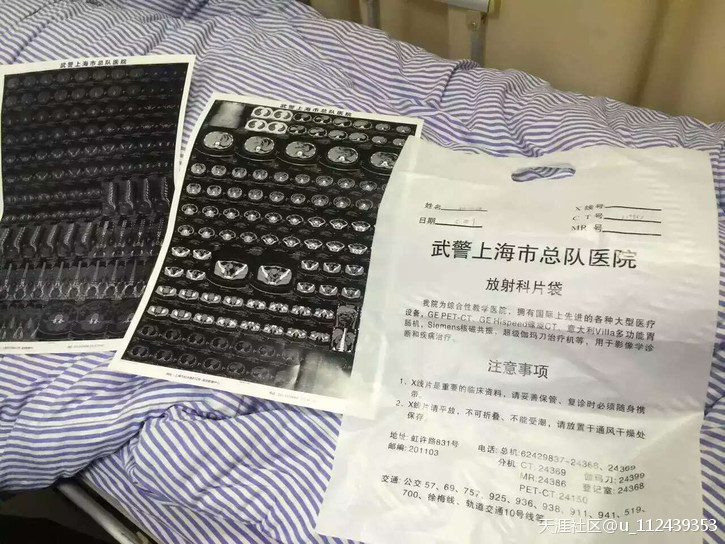 武警上海市总队医院
武警上海市总队医院
姓名
X线号
日期
CT号
MR号
武警上海市总队医院
放射科片袋
我院为综合性教学医院，拥有国际上先进的各种大型医疗
设备，GE PET-CT、GE Hispeed螺旋CT、意大利Villa多功能胃
肠机，Siemens核磁共振、超级伽玛刀治疗机等，用于影像学诊
断和疾病治疗。
注意事项
1、X线片是重要的临床资料，请妥善保管、复诊时必须随身携
带。
2、X线片请平放，不可折叠、不能受潮，请放置于通风干燥处
保存。
地址: 虹许路831号
电话: 总机: 62429837-24368、24369
邮编: 201103
分机: CT. 24369 伽玛刀: 24399
MR: 24386 登记室: 24368
PET-CT. 24150
交通: 公交 57、69、757、925、936、938、911、941、519、
700、徐梅线、轨道交通10号线等
天涯社区@u_112439353